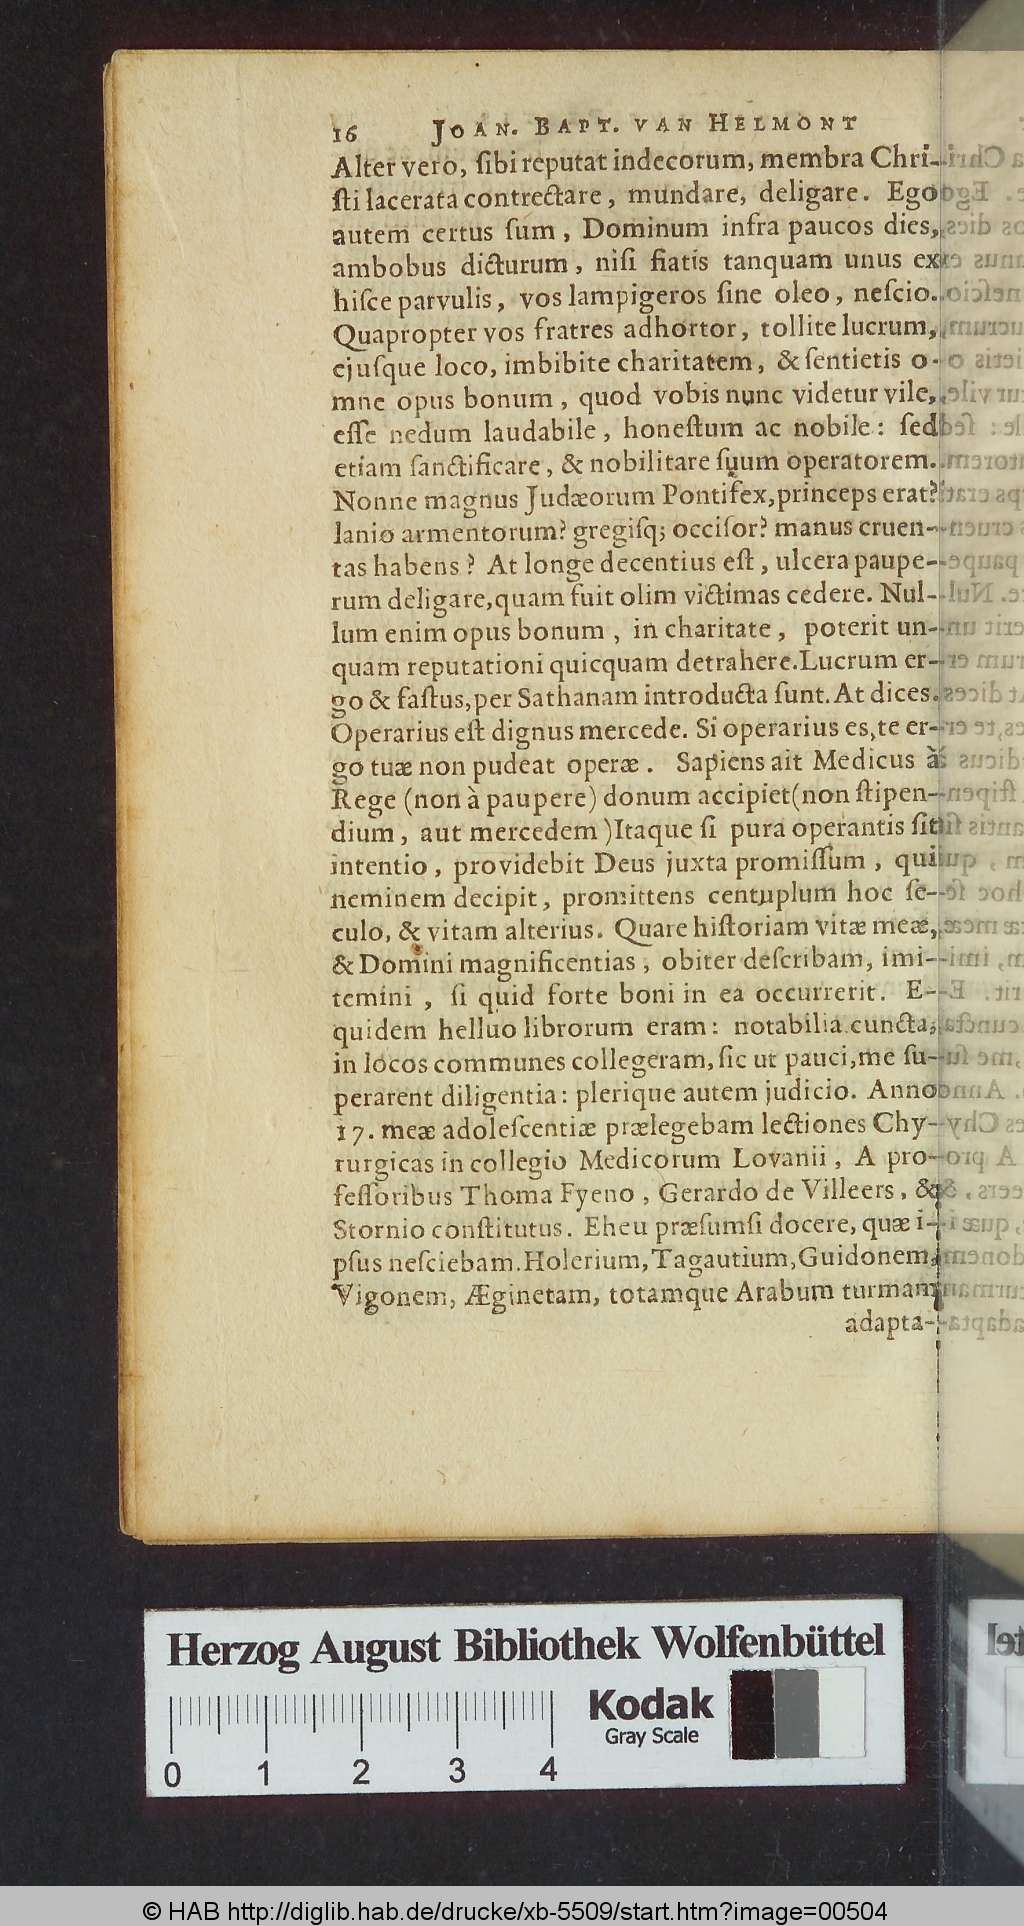 16 JOAN. BAPT. VAN HELMONT
Alter vero, ſibi reputat indecorum, membra Chri-
ſti lacerata contrectare, mundare, deligare. Ego
autem certus ſum, Dominum infra paucos dies,
ambobus dicturum, niſi fiatis tanquam unus ex
hiſce parvulis, vos lampigeros ſine oleo, neſcio.
Quapropter vos fratres adhortor, tollite lucrum,
ejuſque loco, imbibite charitatem, & ſentietis o-
mne opus bonum, quod vobis nunc videtur vile,
eſſe nedum laudabile, honeſtum ac nobile: ſed
etiam ſanctificare, & nobilitare ſuum operatorem.
Nonne magnus Judæorum Pontifex, princeps erat?
lanio armentorum? gregiſq; occiſor? manus cruen-
tas habens? At longe decentius eſt, ulcera paupe-
rum deligare, quam fuit olim victimas cedere. Nul-
lum enim opus bonum, in charitate, poterit un-
quam reputationi quicquam detrahere. Lucrum er-
go & faſtus, per Sathanam introducta ſunt. At dices.
Operarius eſt dignus mercede. Si operarius es, te er-
go tuæ non pudeat operæ. Sapiens ait Medicus à
Rege (non à paupere) donum accipiet (non ſtipen-
dium, aut mercedem) Itaque ſi pura operantis ſit
intentio, providebit Deus juxta promiſſum, qui
neminem decipit, promittens centuplum hoc ſe-
culo, & vitam alterius. Quare hiſtoriam vitæ meæ,
& Domini magnificentias, obiter deſcribam, imi-
temini, ſi quid forte boni in ea occurrerit. E-
quidem helluo librorum eram: notabilia cuncta,
in locos communes collegeram, ſic ut pauci, me ſu-
perarent diligentia: plerique autem judicio. Anno
17. meæ adoleſcentiæ prælegebam lectiones Chy-
rurgicas in collegio Medicorum Lovanii, A pro-
feſſoribus Thoma Fyeno, Gerardo de Villeers, &
Stornio conſtitutus. Eheu præſumſi docere, quæ i-
pſus neſciebam. Holerium, Tagautium, Guidonem,
Vigonem, Æginetam, totamque Arabum turmam
adapta-
Herzog August Bibliothek Wolfenbüttel
Kodak
Gray Scale
0 1 2 3 4
© HAB http://diglib.hab.de/drucke/xb-5509/start.htm?image=00504